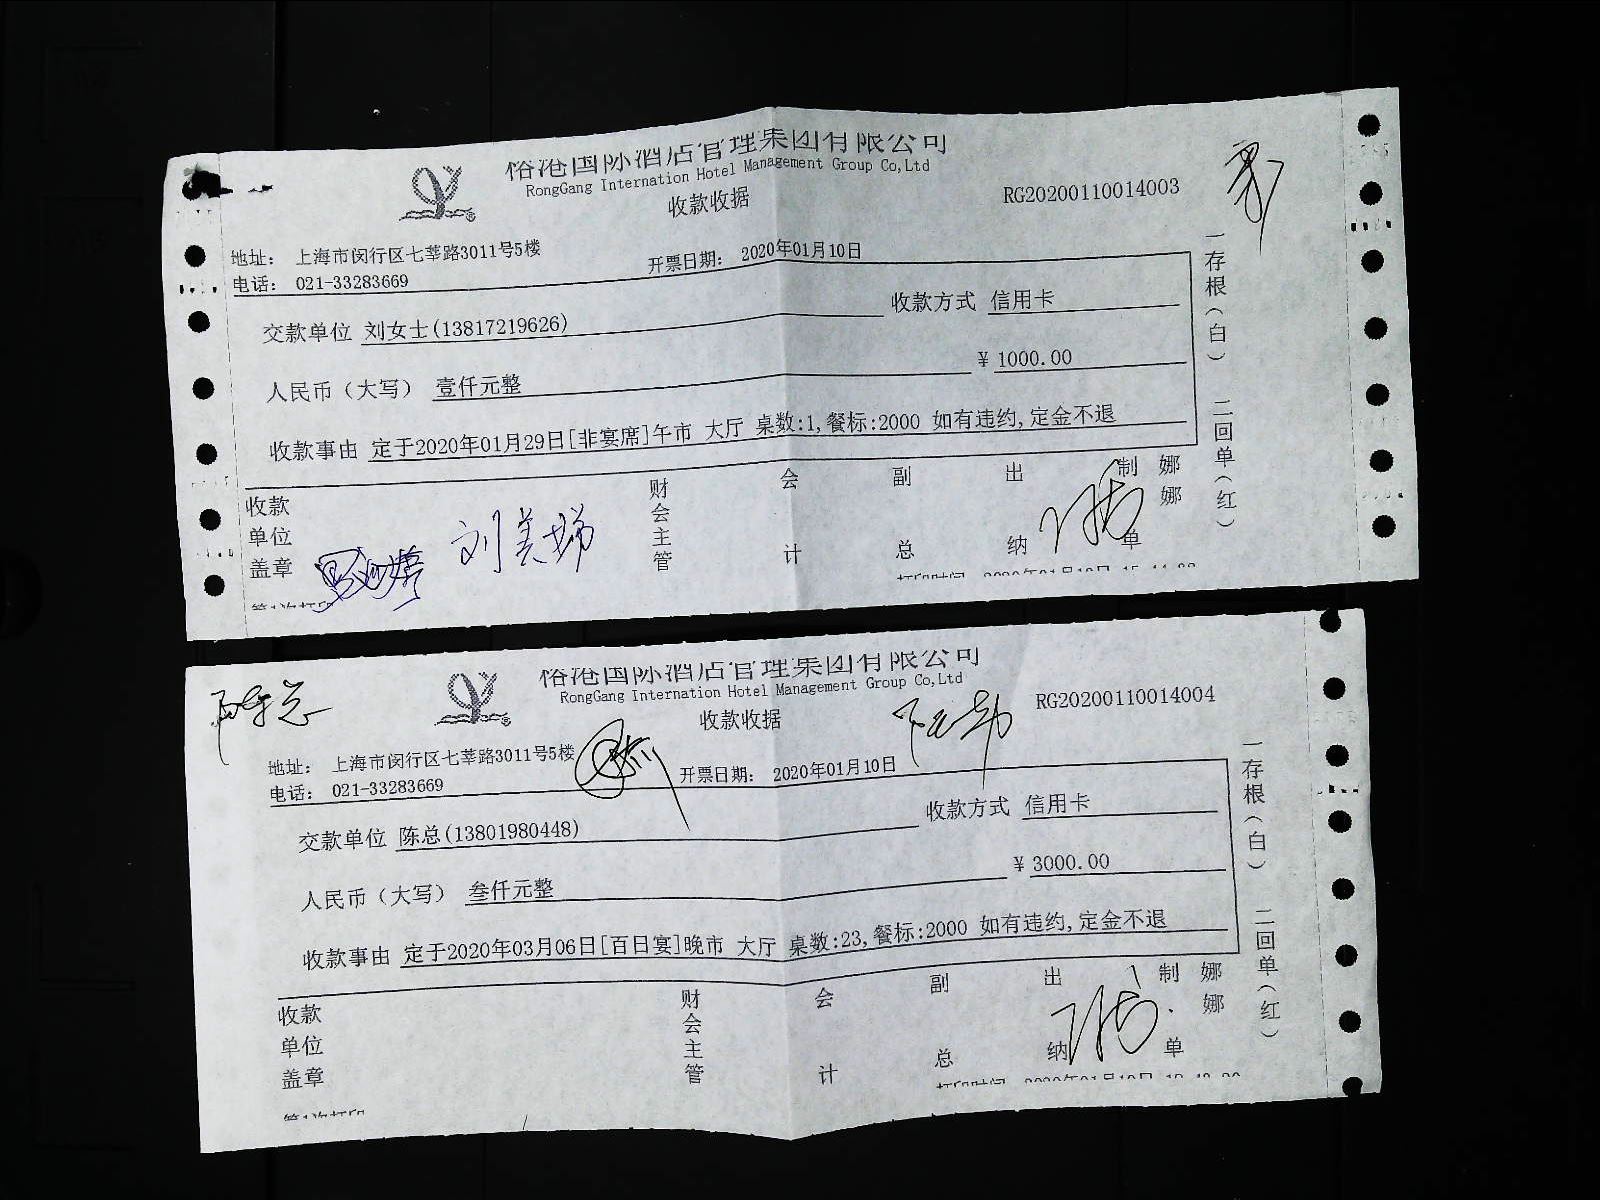 裕港国际酒店管理集团有限公司
RongGang Internation Hotel Management Group Co,Ltd
收款收据
RG20200110014003
地址: 上海市闵行区七莘路3011号5楼
电话: 021-33283669
开票日期: 2020年01月10日
交款单位 刘女士(13817219626)
收款方式 信用卡
人民币（大写） 壹仟元整
¥ 1000.00
收款事由 定于2020年01月29日[非宴席]午市 大厅 桌数:1,餐标:2000 如有违约,定金不退
收款单位盖章
刘美娣
财会主管
会计
副总
出纳
制单
娜娜
一存根（白） 二回单（红）
第1次打印
裕港国际酒店管理集团有限公司
RongGang Internation Hotel Management Group Co,Ltd
收款收据
RG20200110014004
陈总
地址: 上海市闵行区七莘路3011号5楼
电话: 021-33283669
开票日期: 2020年01月10日
交款单位 陈总(13801980448)
收款方式 信用卡
人民币（大写） 叁仟元整
¥ 3000.00
收款事由 定于2020年03月06日[百日宴]晚市 大厅 桌数:23,餐标:2000 如有违约,定金不退
收款单位盖章
财会主管
会计
副总
出纳
制单
娜娜
一存根（白） 二回单（红）
第1次打印